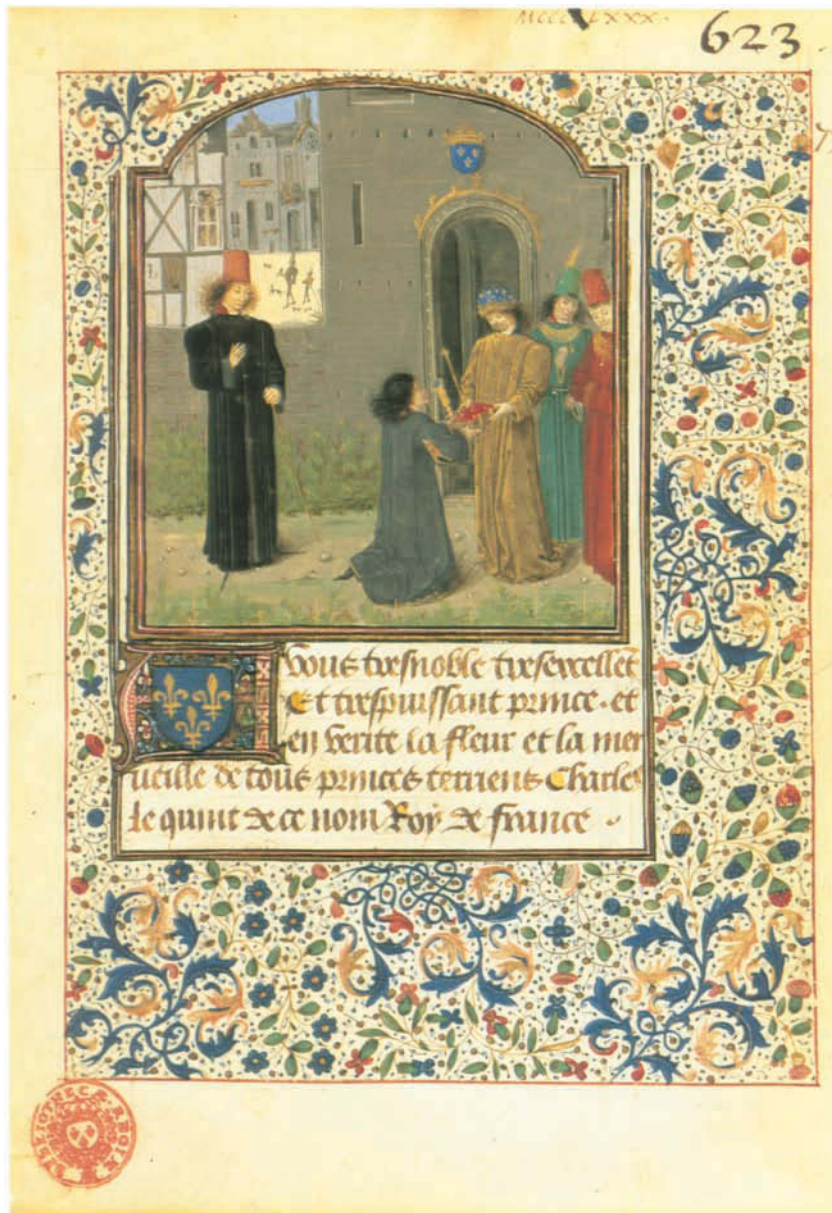 623
vous tresnoble tresexcellet
Et trespuissant prince. et
en verite la fleur et la mer
ueille de tous princes terriens Charles
le quint de ce nom Roy de france .
BIBLIOTHECÆ REGIÆ